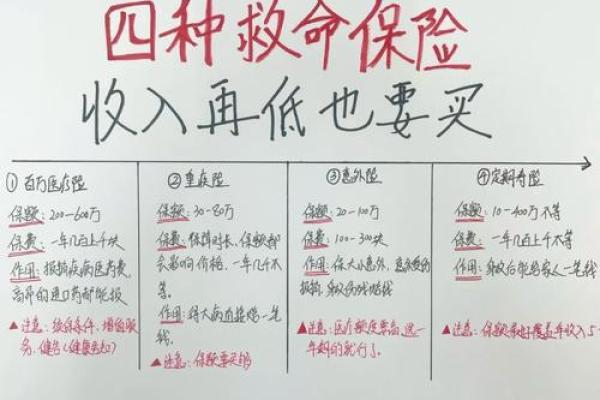 四种救命保险
收入再低也要买
①百万医疗险
保额:200-600万
保费:一年几百上千块
作用:报销疾病医药费,
高昂的进口药都能报
▲注意:续保条件、增值服
务、健告(健康告知)
②重疾险
保额:30-80万
保费:保障时长、保额都
会影响价格,一年几千不
等。
作用:得大病直接赔一笔
钱。
▲注意:保额要买够
③意外险
保额:20-100万
保费:100-300块
作用:保大小意外,意外受伤
报销,身故伤残赔钱
▲注意:医疗额度要高,选一
年期的就行了。
④定期寿险
保额:10-400万不等
保费:一年几百上千不等
作用:身故后能给家人一笔钱
▲注意:保额最好覆盖年收入5-